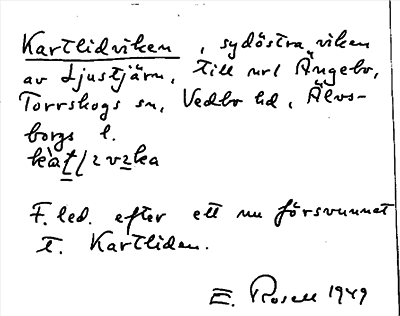 Kartlidviken, sydöstra viken
av Ljustjärn, till url Ängebo,
Torrskogs sn, Vedbo hd, Älvs-
borgs l.
F. led. efter ett nu försvunnet
t. Kartliden.
E. Rosell 1949